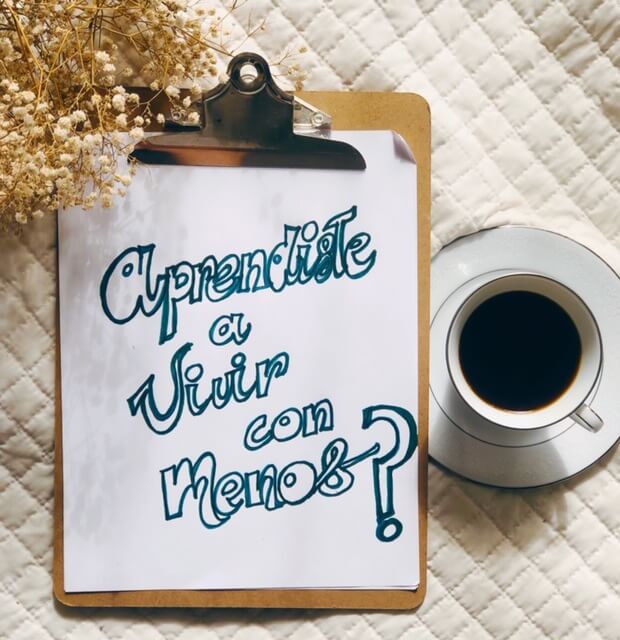 Aprendiste
a
Vivir
con
Menos?